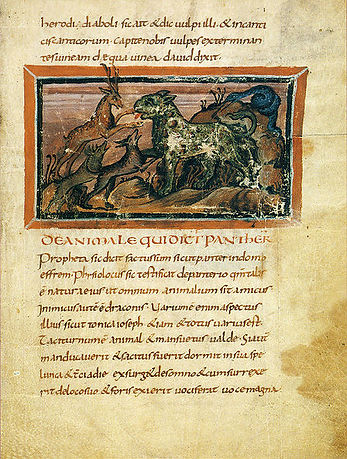 herodi; diaboli sic ait & dic vulpi illi, & incanti
cis canticorum. capite nobis vulpes exterminan
tes vineam de qua vinea david dixit.
DE ANIMALE QUI DICT PANTHER
Propheta sic dicit factus sum sicut panter in domo
effrem. Phisiologus sic testificat de panterio qm talis
& natura eius ut omnium animalium sit amicus
Inimicus aute draconis. Varium enim aspectus
illius sicut tonica ioseph
Taciturnum animal & mansuetus valde. Si aut
manducaverit & siciatus fuerit dormit in sua spe
lunca & tercia die exsurg& de somno & cum surrexe
rit de loco suo & foris exierit vociferat voce magna.